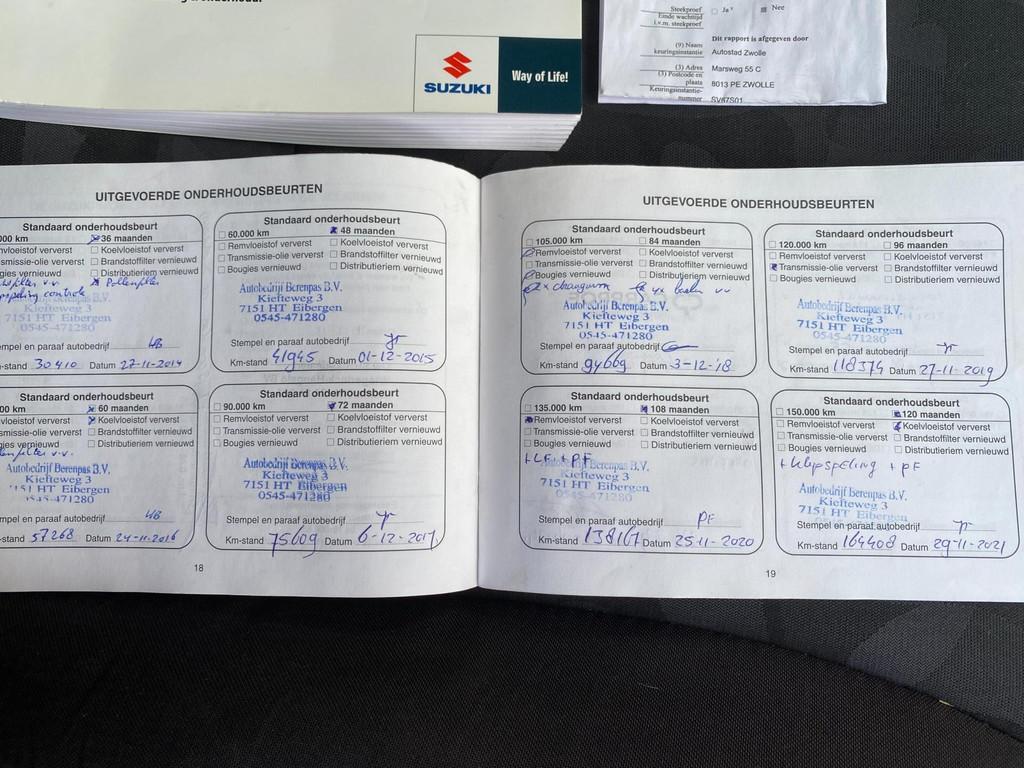 SUZUKI
Way of Life!
Steekproef Ja Nee
Einde wachttijd
i.v.m. steekproef
Dit rapport is afgegeven door
(9) Naam
keuringsinstantie Autostad Zwolle
(3) Adres Marsweg 55 C
(3) Postcode en
plaats 8013 PE ZWOLLE
Keuringsinstantie-
nummer SV87S01
UITGEVOERDE ONDERHOUDSBEURTEN
Standaard onderhoudsbeurt
000 km 36 maanden
mvloeistof ververst Koelvloeistof ververst
smissie-olie ververst Brandstoffilter vernieuwd
gies vernieuwd Distributieriem vernieuwd
v.v. Pollenfilter
controle
Autobedrijf Berenpas B.V.
Kiefteweg 3
7151 HT Eibergen
0545-471280
empel en paraaf autobedrijf WB
-stand 30410 Datum 27-11-2014
Standaard onderhoudsbeurt
60.000 km 48 maanden
Remvloeistof ververst Koelvloeistof ververst
Transmissie-olie ververst Brandstoffilter vernieuwd
Bougies vernieuwd Distributieriem vernieuwd
Autobedrijf Berenpas B.V.
Kiefteweg 3
7151 HT Eibergen
0545-471280
Stempel en paraaf autobedrijf
Km-stand 41945 Datum 01-12-2015
Standaard onderhoudsbeurt
00 km 60 maanden
mvloeistof ververst Koelvloeistof ververst
smissie-olie ververst Brandstoffilter vernieuwd
gies vernieuwd Distributieriem vernieuwd
v.v.
Autobedrijf Berenpas B.V.
Kiefteweg 3
7151 HT Eibergen
0545-471280
mpel en paraaf autobedrijf WB
-stand 57268 Datum 24-11-2016
Standaard onderhoudsbeurt
90.000 km 72 maanden
Remvloeistof ververst Koelvloeistof ververst
Transmissie-olie ververst Brandstoffilter vernieuwd
Bougies vernieuwd Distributieriem vernieuwd
Autobedrijf Berenpas B.V.
Kiefteweg 3
7151 HT Eibergen
0545-471280
Stempel en paraaf autobedrijf
Km-stand 75609 Datum 6-12-2017
18
UITGEVOERDE ONDERHOUDSBEURTEN
Standaard onderhoudsbeurt
105.000 km 84 maanden
Remvloeistof ververst Koelvloeistof ververst
Transmissie-olie ververst Brandstoffilter vernieuwd
Bougies vernieuwd Distributieriem vernieuwd
2x 4x vv
Autobedrijf Berenpas B.V.
Kiefteweg 3
7151 HT Eibergen
0545-471280
Stempel en paraaf autobedrijf
Km-stand 94669 Datum 3-12-'18
Standaard onderhoudsbeurt
120.000 km 96 maanden
Remvloeistof ververst Koelvloeistof ververst
Transmissie-olie ververst Brandstoffilter vernieuwd
Bougies vernieuwd Distributieriem vernieuwd
Autobedrijf Berenpas B.V.
Kiefteweg 3
7151 HT Eibergen
0545-471280
Stempel en paraaf autobedrijf
Km-stand 118374 Datum 27-11-2019
Standaard onderhoudsbeurt
135.000 km 108 maanden
Remvloeistof ververst Koelvloeistof ververst
Transmissie-olie ververst Brandstoffilter vernieuwd
Bougies vernieuwd Distributieriem vernieuwd
+LF + PF
Autobedrijf Berenpas B.V.
Kiefteweg 3
7151 HT Eibergen
0545-471280
Stempel en paraaf autobedrijf PF
Km-stand 138167 Datum 25-11-2020
Standaard onderhoudsbeurt
150.000 km 120 maanden
Remvloeistof ververst Koelvloeistof ververst
Transmissie-olie ververst Brandstoffilter vernieuwd
Bougies vernieuwd Distributieriem vernieuwd
+ klepspeling + PF
Autobedrijf Berenpas B.V.
Kiefteweg 3
7151 HT Eibergen
0545-471280
Stempel en paraaf autobedrijf
Km-stand 164408 Datum 29-11-2021
19